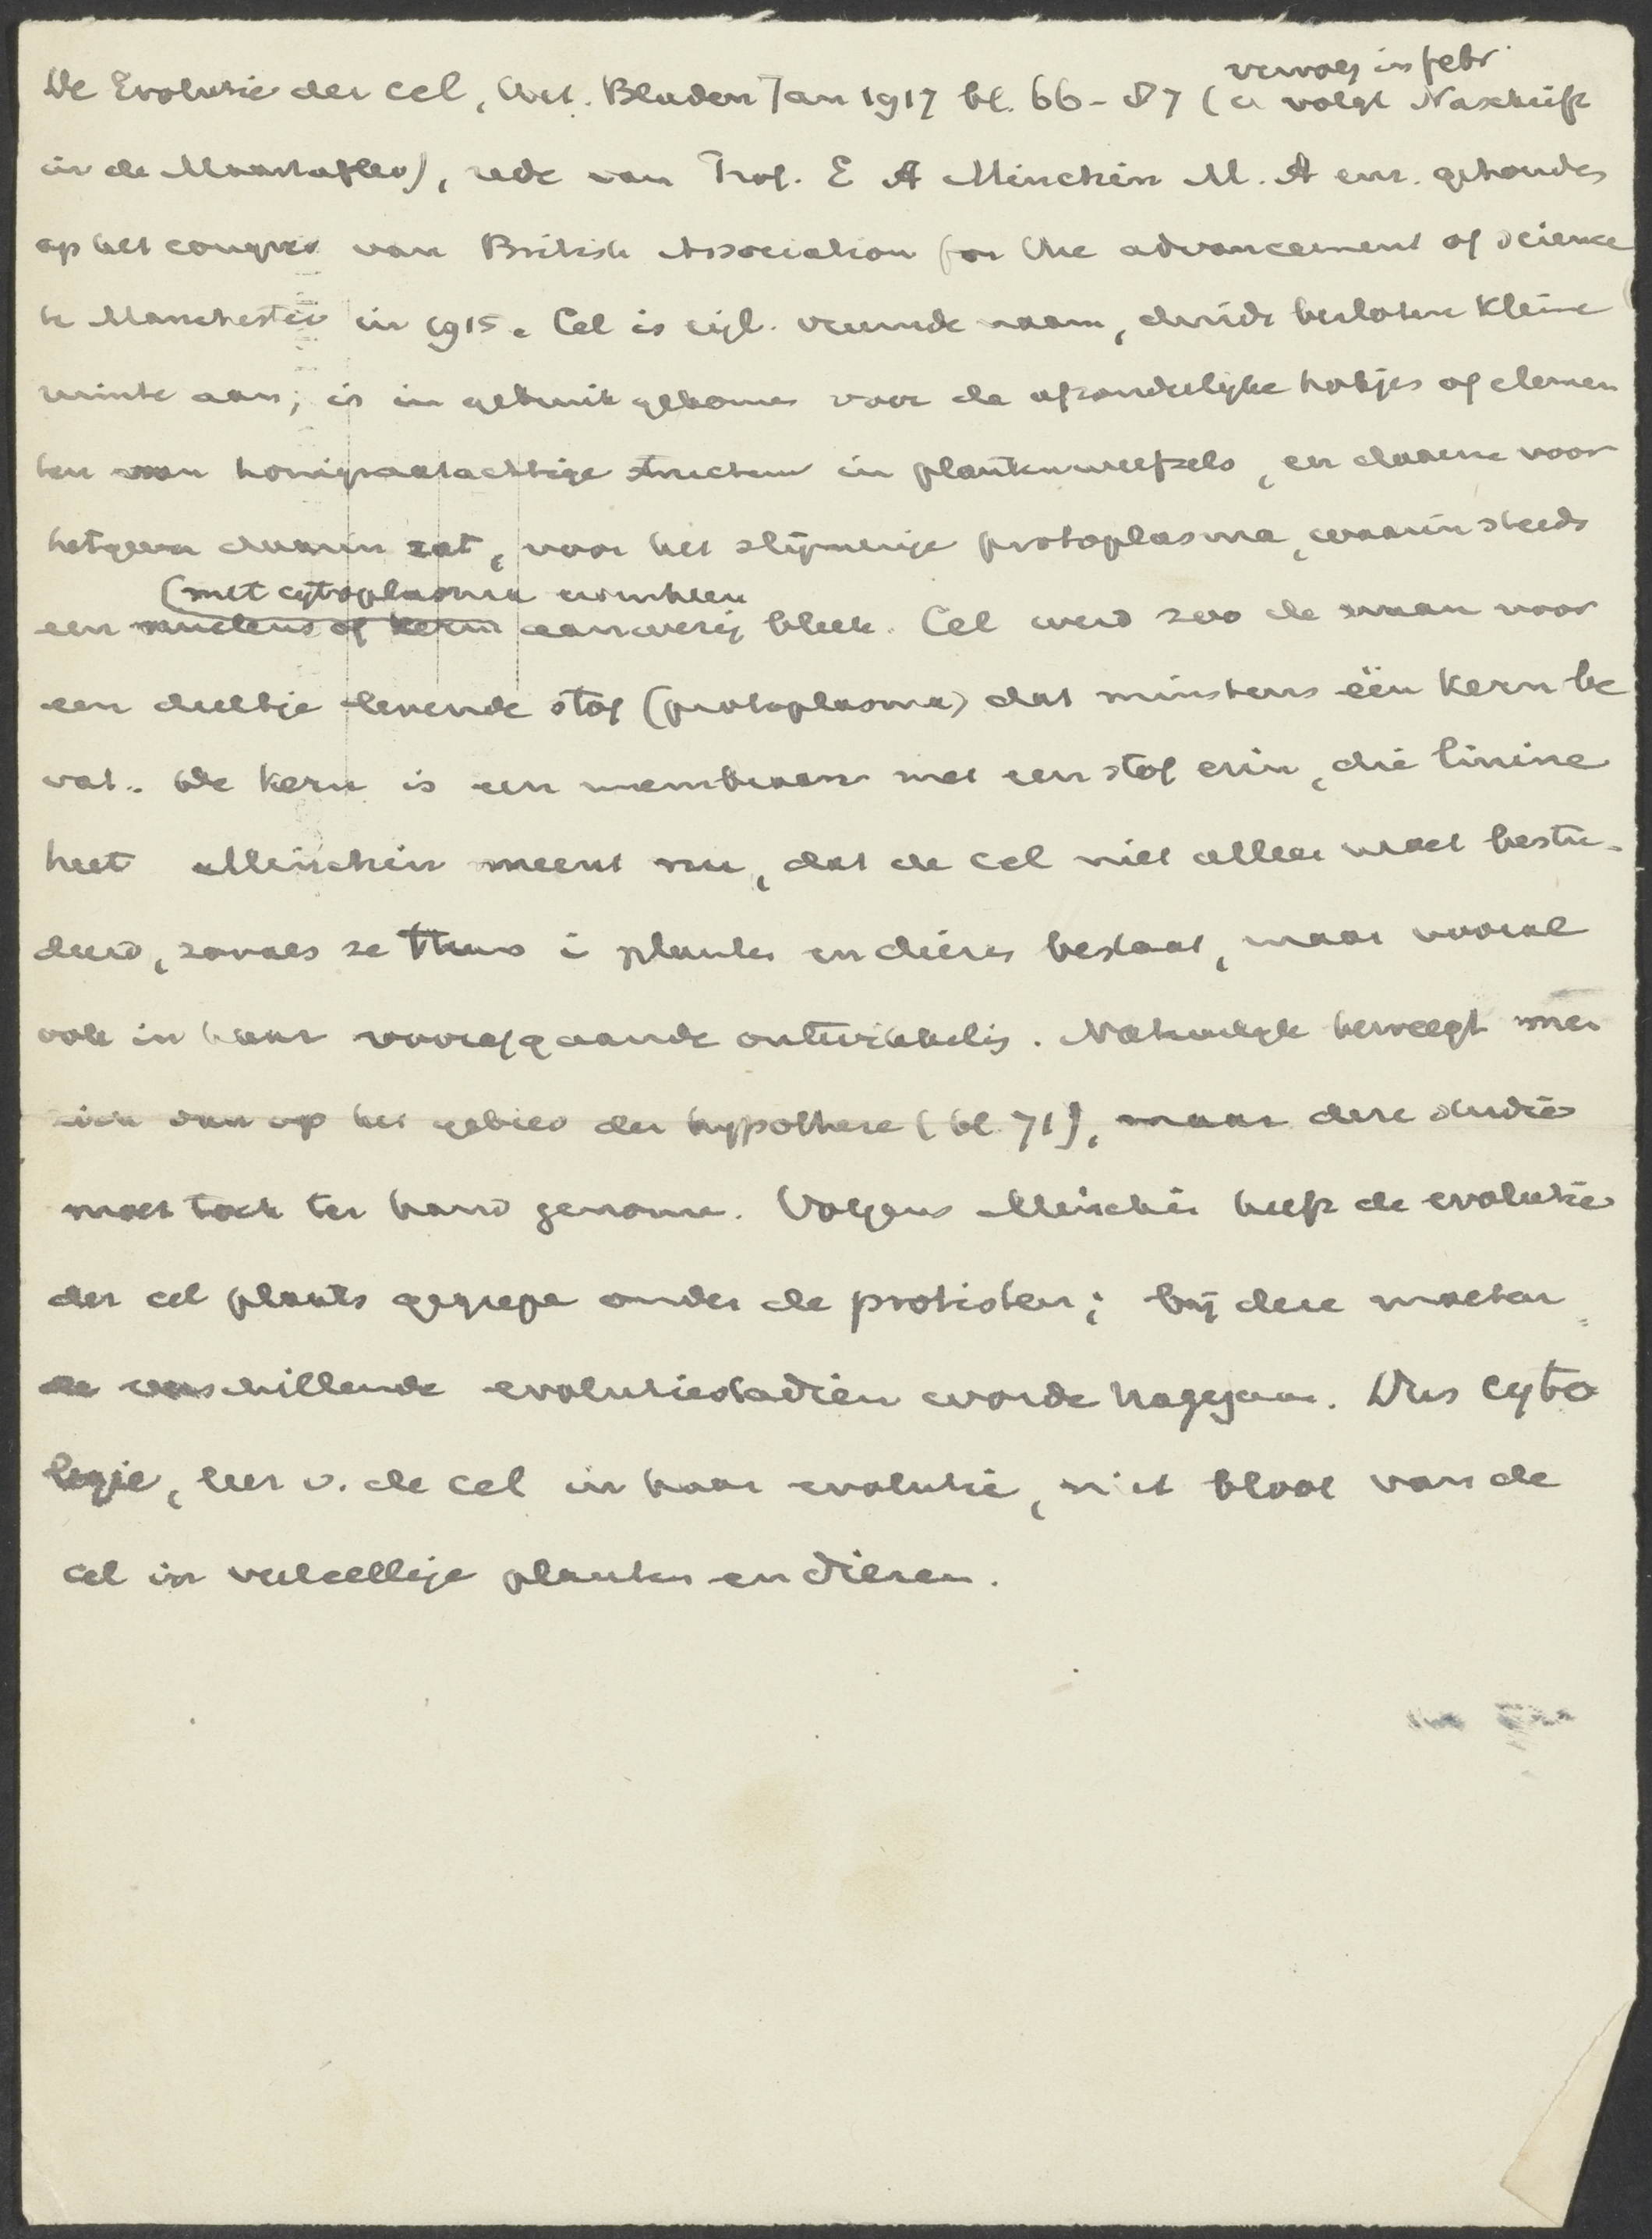 vervolg in febr
De Evolutie der cel, Wet. Bladen Jan 1917 bl. 66-87 (er volgt Naschrift
in de Maartaflev), rede van Prof. E A Minchin M. A enz. gehouden
op het congres van British Association for the advancement of science
te Manchester in 1915. Cel is eigl. vreemde naam, duidt besloten kleine
ruimte aan; is in gebruik gekomen voor de afzonderlijke hokjes of elemen
ten van honigraatachtige structuur in plantenweefzels, en daarna voor
hetgeen daarin zat, voor het slijmerige protoplasma, waarin steeds
(met cytoplasma eromheen
een nucleus of kern aanwezig bleek. Cel werd zoo de naam voor
een deeltje levende stof (protoplasma) dat minstens één kern be
vat. De kern is een membraan met een stof erin, die linine
heet Minchin meent nu, dat de cel niet alleen moet bestu-
deerd, zooals ze thans i planten en dieren bestaat, maar vooral
ook in haar voorafgaande ontwikkelig. Natuurlijk beweegt men
zich dan op het gebied der hypothese (bl. 71), maar deze studie
moet toch ter hand genome. Volgens Minchin heeft de evolutie
der cel plaats gegrepe onder de protisten; bij deze moeten
de verschillende evolutiestadiën worde nagegaan. Dus cyto
logie, leer v. de cel in haar evolutie, niet bloot van de
cel in veelcellige planten en dieren.